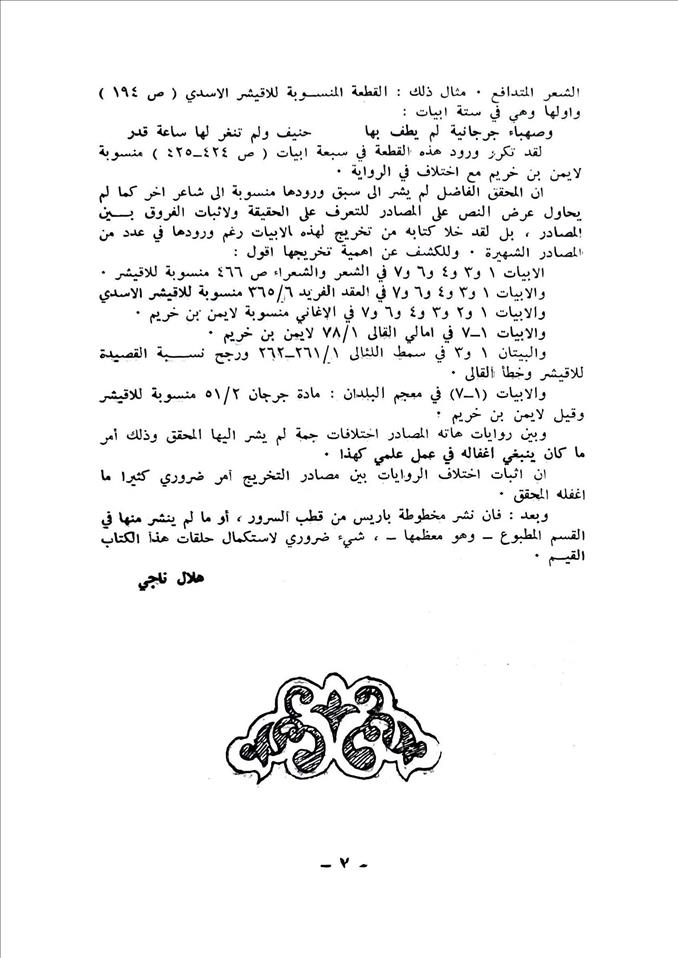 الشعر المتدافع ٠ مثال ذلك : القطعة المنسوبة للاقيشر الاسدي ( ص ١٩٤ )
واولها وهي في ستة ابيات :
وصهباء جرجانية لم يطف بها حنيف ولم تنغر لها ساعة قدر
لقد تكرر ورود هذه القطعة في سبعة ابيات ( ص ٤٢٤-٤٢٥ ) منسوبة
لايمن بن خريم مع اختلاف في الرواية ٠
ان المحقق الفاضل لم يشر الى سبق ورودها منسوبة الى شاعر اخر كما لم
يحاول عرض النص على المصادر للتعرف على الحقيقة ولاثبات الفروق بين
المصادر ، بل لقد خلا كتابه من تخريج لهذه الابيات رغم ورودها في عدد من
المصادر الشهيرة ٠ وللكشف عن اهمية تخريجها اقول :
الابيات ١ و٣ و٤ و٦ و٧ في الشعر والشعراء ص ٤٦٦ منسوبة للاقيشر ٠
والابيات ١ و٣ و٤ و٦ و٧ في العقد الفريد ٣٦٥/٦ منسوبة للاقيشر الاسدي
والابيات ١ و٢ و٣ و٤ و٦ و٧ في الاغاني منسوبة لايمن بن خريم ٠
والابيات ١-٧ في امالي القالى ٧٨/١ لايمن بن خريم ٠
والبيتان ١ و٣ في سمط اللئالى ٢٦١/١-٢٦٢ ورجح نسبة القصيدة
للاقيشر وخطأ القالى ٠
والابيات (١-٧) في معجم البلدان : مادة جرجان ٥١/٢ منسوبة للاقيشر
وقيل لايمن بن خريم ٠
وبين روايات هاته المصادر اختلافات جمة لم يشر اليها المحقق وذلك أمر
ما كان ينبغي اغفاله في عمل علمي كهذا ٠
ان اثبات اختلاف الروايات بين مصادر التخريج أمر ضروري كثيرا ما
اغفله المحقق ٠
وبعد : فان نشر مخطوطة باريس من قطب السرور ، أو ما لم ينشر منها في
القسم المطبوع - وهو معظمها - ، شيء ضروري لاستكمال حلقات هذا الكتاب
القيم ٠
هلال ناجي
- ٧ -